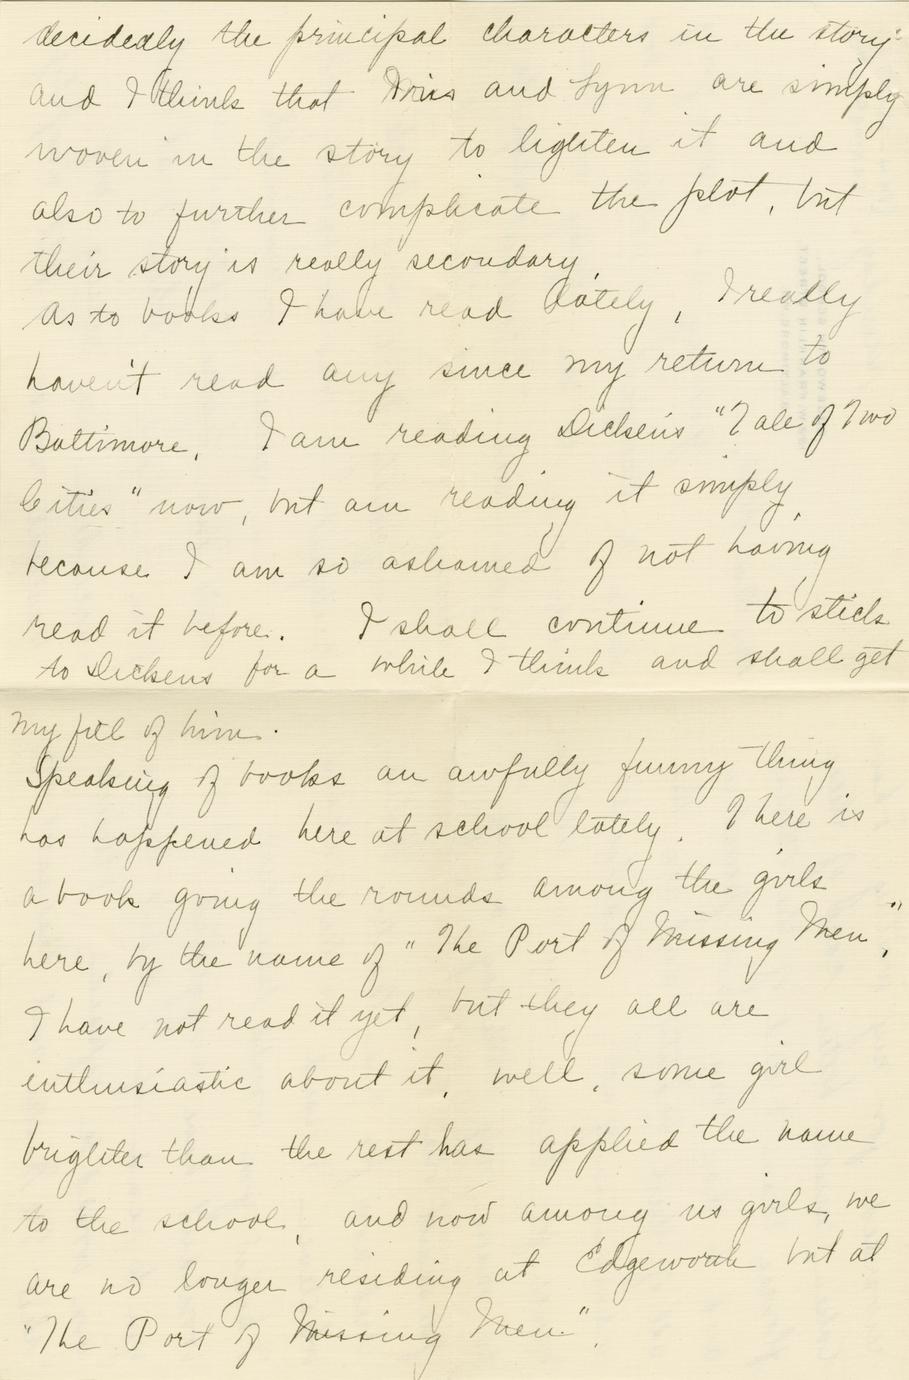 decidedly the principal characters in the story:
and I think that Miss and Lynn are simply
woven in the story to lighten it and
also to further complicate the plot, but
their story is really secondary.
As to books I have read lately, I really
haven't read any since my return to
Baltimore. I am reading Dicken's "Tale of Two
Cities" now, but am reading it simply
because I am so ashamed of not having
read it before. I shall continue to stick
to Dickens for a while I think and shall get
my fill of him.
Speaking of books an awfully funny thing
has happened here at school lately. There is
a book going the rounds among the girls
here, by the name of "The Port of Missing Men",
I have not read it yet, but they all are
enthusiastic about it, well, some girl
brighter than the rest has applied the name
to the school, and now among us girls, we
are no longer residing at Edgeworth but at
"The Port of Missing Men".